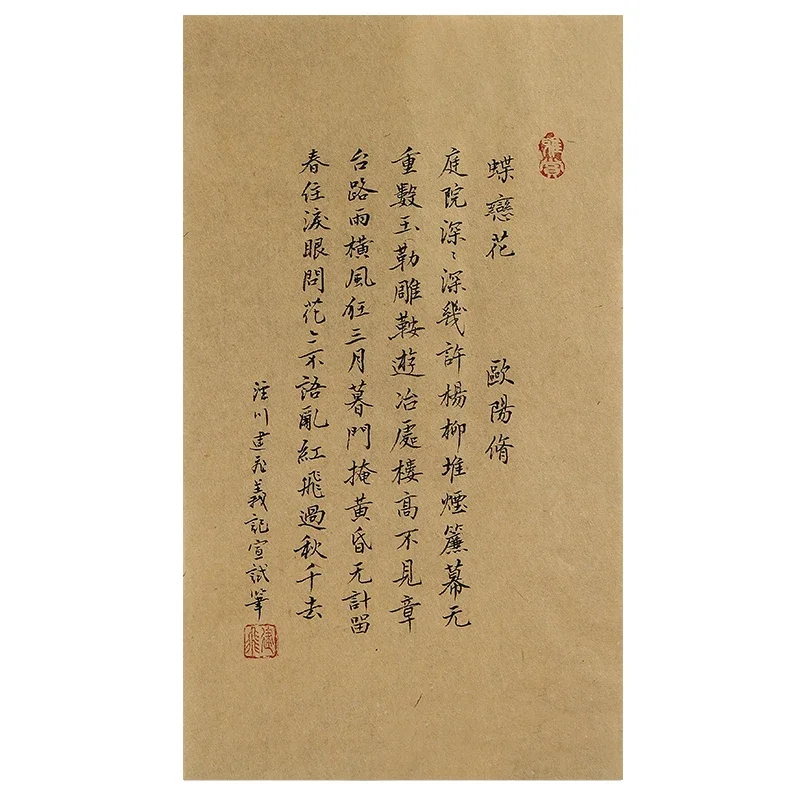 蝶戀花 歐陽脩
庭院深〻深幾許楊柳堆煙簾幕无
重數玉勒雕鞍遊冶處樓高不見章
台路雨橫風狂三月暮門掩黃昏无計留
春住淚眼問花〻不語亂紅飛過秋千去
涇川建飛義記宣試筆